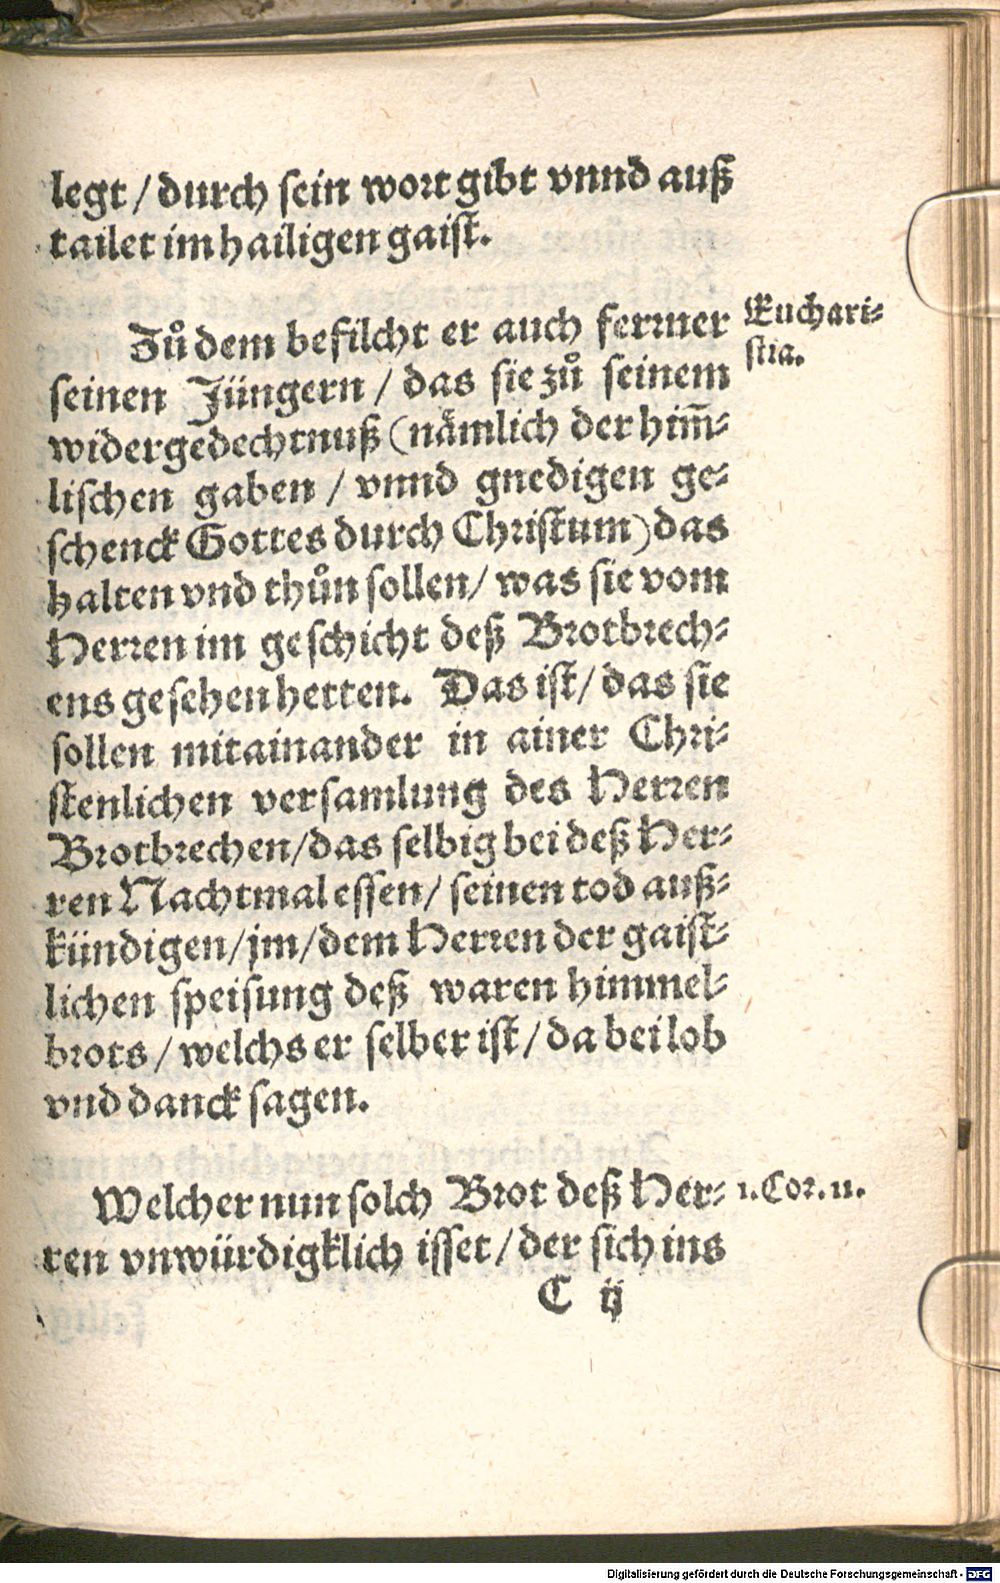 legt / durch sein wort gibt vnnd auß
tailet im hailigen gaist.
Zů dem befilcht er auch ferrner
Euchari-
stia.
seinen Jüngern / das sie zů seinem
widergedechtnuß (nämlich der him̄-
lischen gaben / vnnd gnedigen ge-
schenck Gottes durch Christum) das
halten vnd thůn sollen / was sie vom
Herren im geschicht deß Brotbrech-
ens gesehen hetten. Das ist / das sie
sollen mitainander in ainer Chri-
stenlichen versamlung des Herren
Brotbrechen / das selbig bei deß Her-
ren Nachtmal essen / seinen tod auß-
kündigen / jm / dem Herren der gaist-
lichen speisung deß waren himmel-
brots / welchs er selber ist / da bei lob
vnd danck sagen.
Welcher nun solch Brot deß Her-
1. Cor. 11.
ren vnwürdigklich isset / der sich ins
C ij
Digitalisierung gefördert durch die Deutsche Forschungsgemeinschaft - DFG